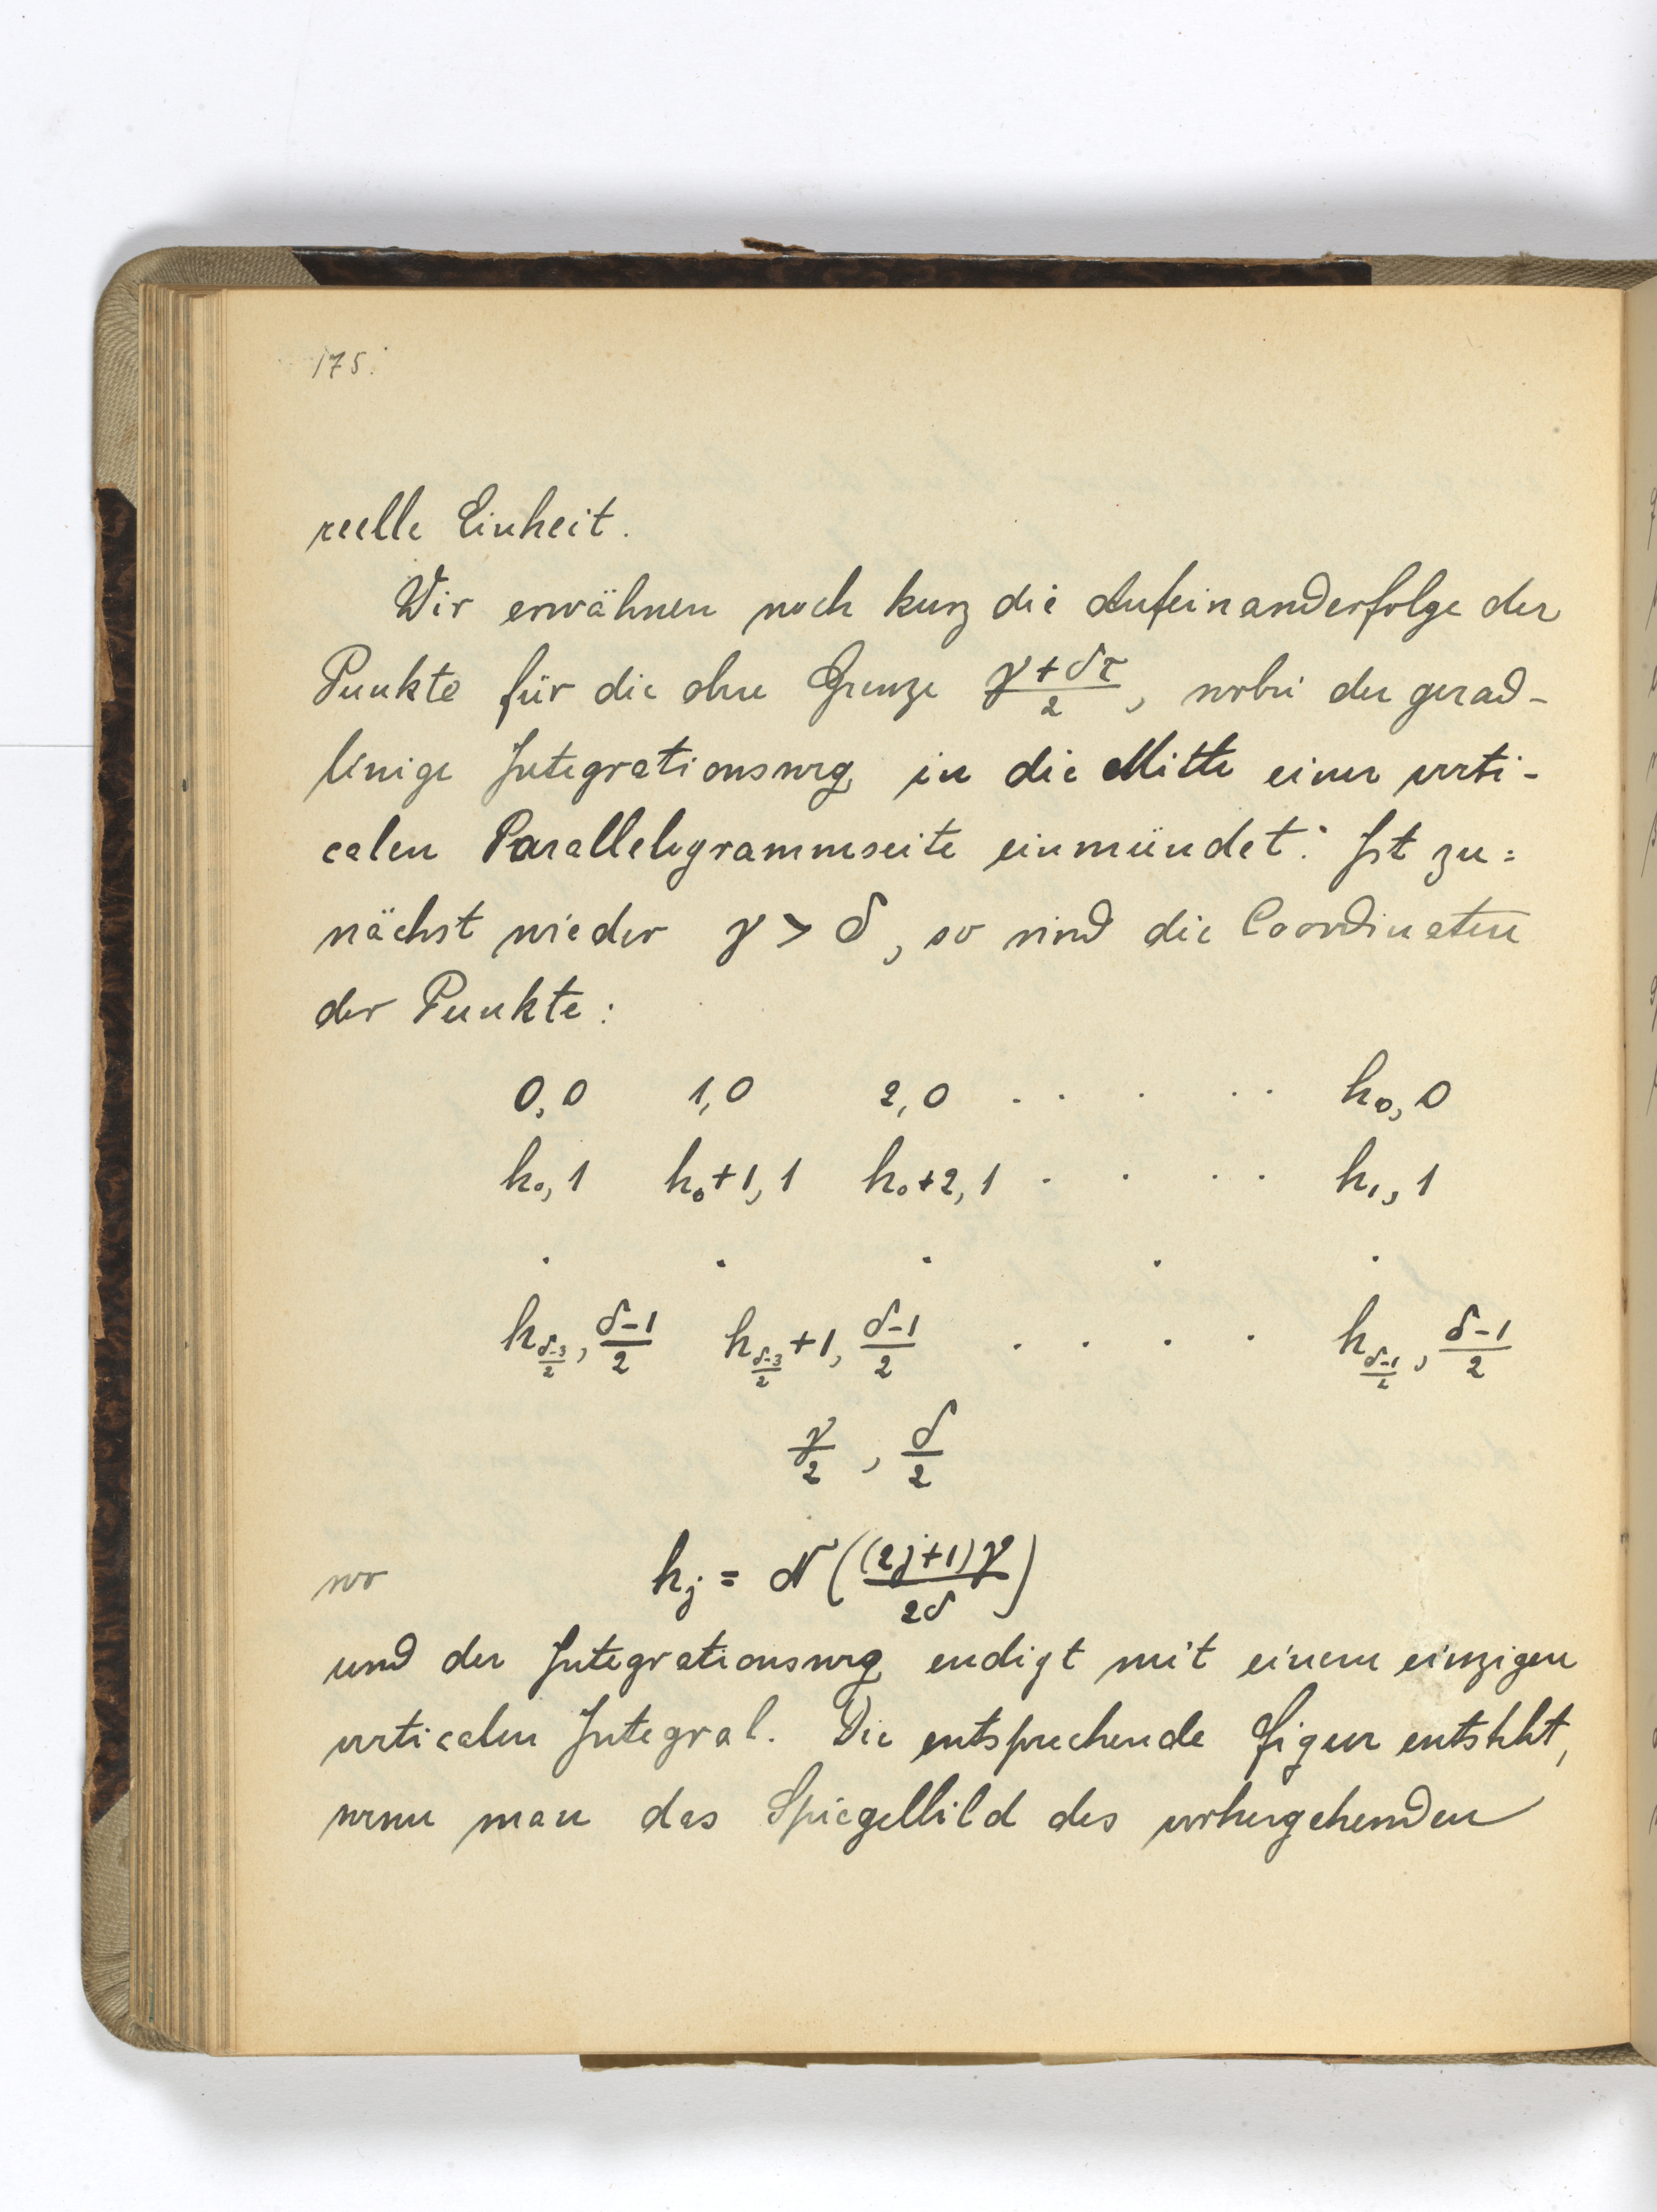 175.
reelle Einheit.
Wir erwähnen noch kurz die Aufeinanderfolge der
Punkte für die obere Grenze (γ+δτ)/2, wobei der gerad-
linige Integrationsweg in die Mitte einer verti-
calen Parallelogrammseite einmündet. Ist zu=
nächst wieder γ > δ, so sind die Coordinaten
der Punkte:
0,0 1,0 2,0 . . . . . h₀, 0
h₀, 1 h₀+1, 1 h₀+2, 1 . . . . h₁, 1
. . . . .
h_{(δ-3)/2}, (δ-1)/2 h_{(δ-3)/2}+1, (δ-1)/2 . . . . h_{(δ-1)/2}, (δ-1)/2
γ/2, δ/2
wo h_j = N((2j+1)γ/2δ)
und der Integrationsweg endigt mit einem einzigen
verticalen Integral. Die entsprechende Figur entsteht,
wenn man das Spiegelbild des vorhergehenden